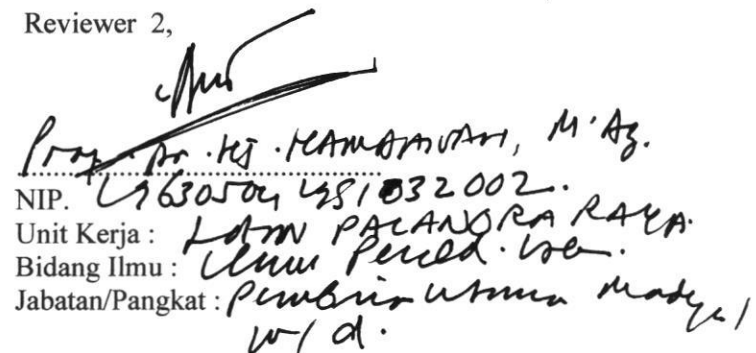 Reviewer 2,
Prof. Dr. Hj. HAMDANAH, M.Ag.
NIP. 19630504 1991032002.
Unit Kerja : IAIN PALANGKA RAYA.
Bidang Ilmu : Ilmu Pendd. Isl.
Jabatan/Pangkat : Pembina Utama Madya/
IV/d.